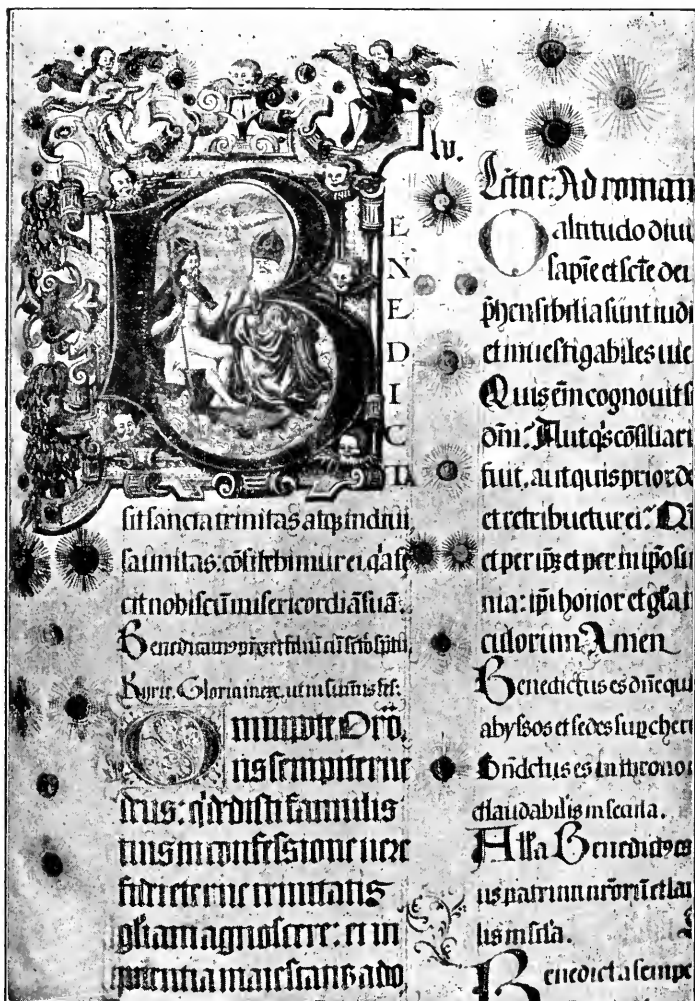 BENEDICTA
sit sancta trinitas atqꝫ indiui
sa unitas: cōfitebimur ei, q̇a fe
cit nobiscū misericordiā suā:
Benedicamꝰ p̄rē et filiū cū sctō spiritu
Kyrie. Gloria in exc. ut in sūmis fes:
Omnipote Orō.
ns sempiterne
deus: q̇ dedisti famulis
tuis in confessione uere
fidei eterne trinitatis
gl̄iam agnoscere: et in
potentia maiestatis ado,
lv.
Lctio: Ad roman
O altitudo diui
sapie et sctē dei
p̄hensibilia sunt iudi
et inuestigabiles uie
Quis em̄ cognouit s
dn̄i: Aut q̇s cōsiliari
fuit, aut quis prior de
et retribuetur ei: Qm̄
et per ipꝫ et per in ipo sū
nia: ip̄i honor et gl̄a i
culorum Amen
Benedictus es dn̄e qui
abyssos et sedes sup cheri
Bn̄dctus es in throno
et laudabilis in secula.
Alla Benedictꝰ es
us patrum nr̄orū et lau
lis in sc̄la.
Benedicta sempe